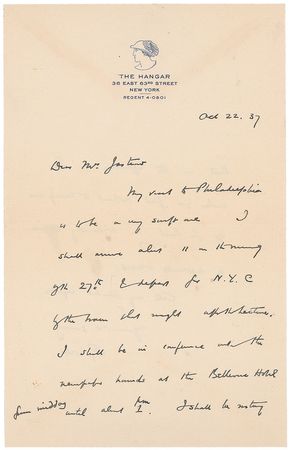 THE HANGAR
36 EAST 63RD STREET
NEW YORK
REGENT 4-0801
Oct 22. 37
Dear Mr.
My visit to Philadelphia
is to be a very swift one I
shall arrive about 11 in the morning
of the 27th & depart for N.Y.C
by the train that night after the lecture.
I shall be in conference with the
newspaper hounds at the Bellevue Hotel
from midday until about 1 pm. I shall be resting